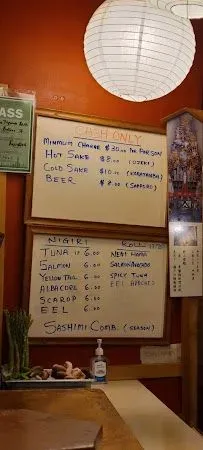 ASS
CASH ONLY
MINIMUM CHARGE $30.00 PER PERSON
HOT SAKE $8.00 (OZEKI)
COLD SAKE $10.00 (KARATAMBA)
BEER $8.00 (SAPPORO)
NIGIRI ROLL
TUNA 6.00 NEGI HAMA
SALMON 6.00 SALMON AVOCADO
YELLOW TAIL 6.00 SPICY TUNA
ALBACORE 6.00 EEL AVOCADO
SCAROP 6.00
EEL 6.00
SASHIMI COMB. (SEASON)